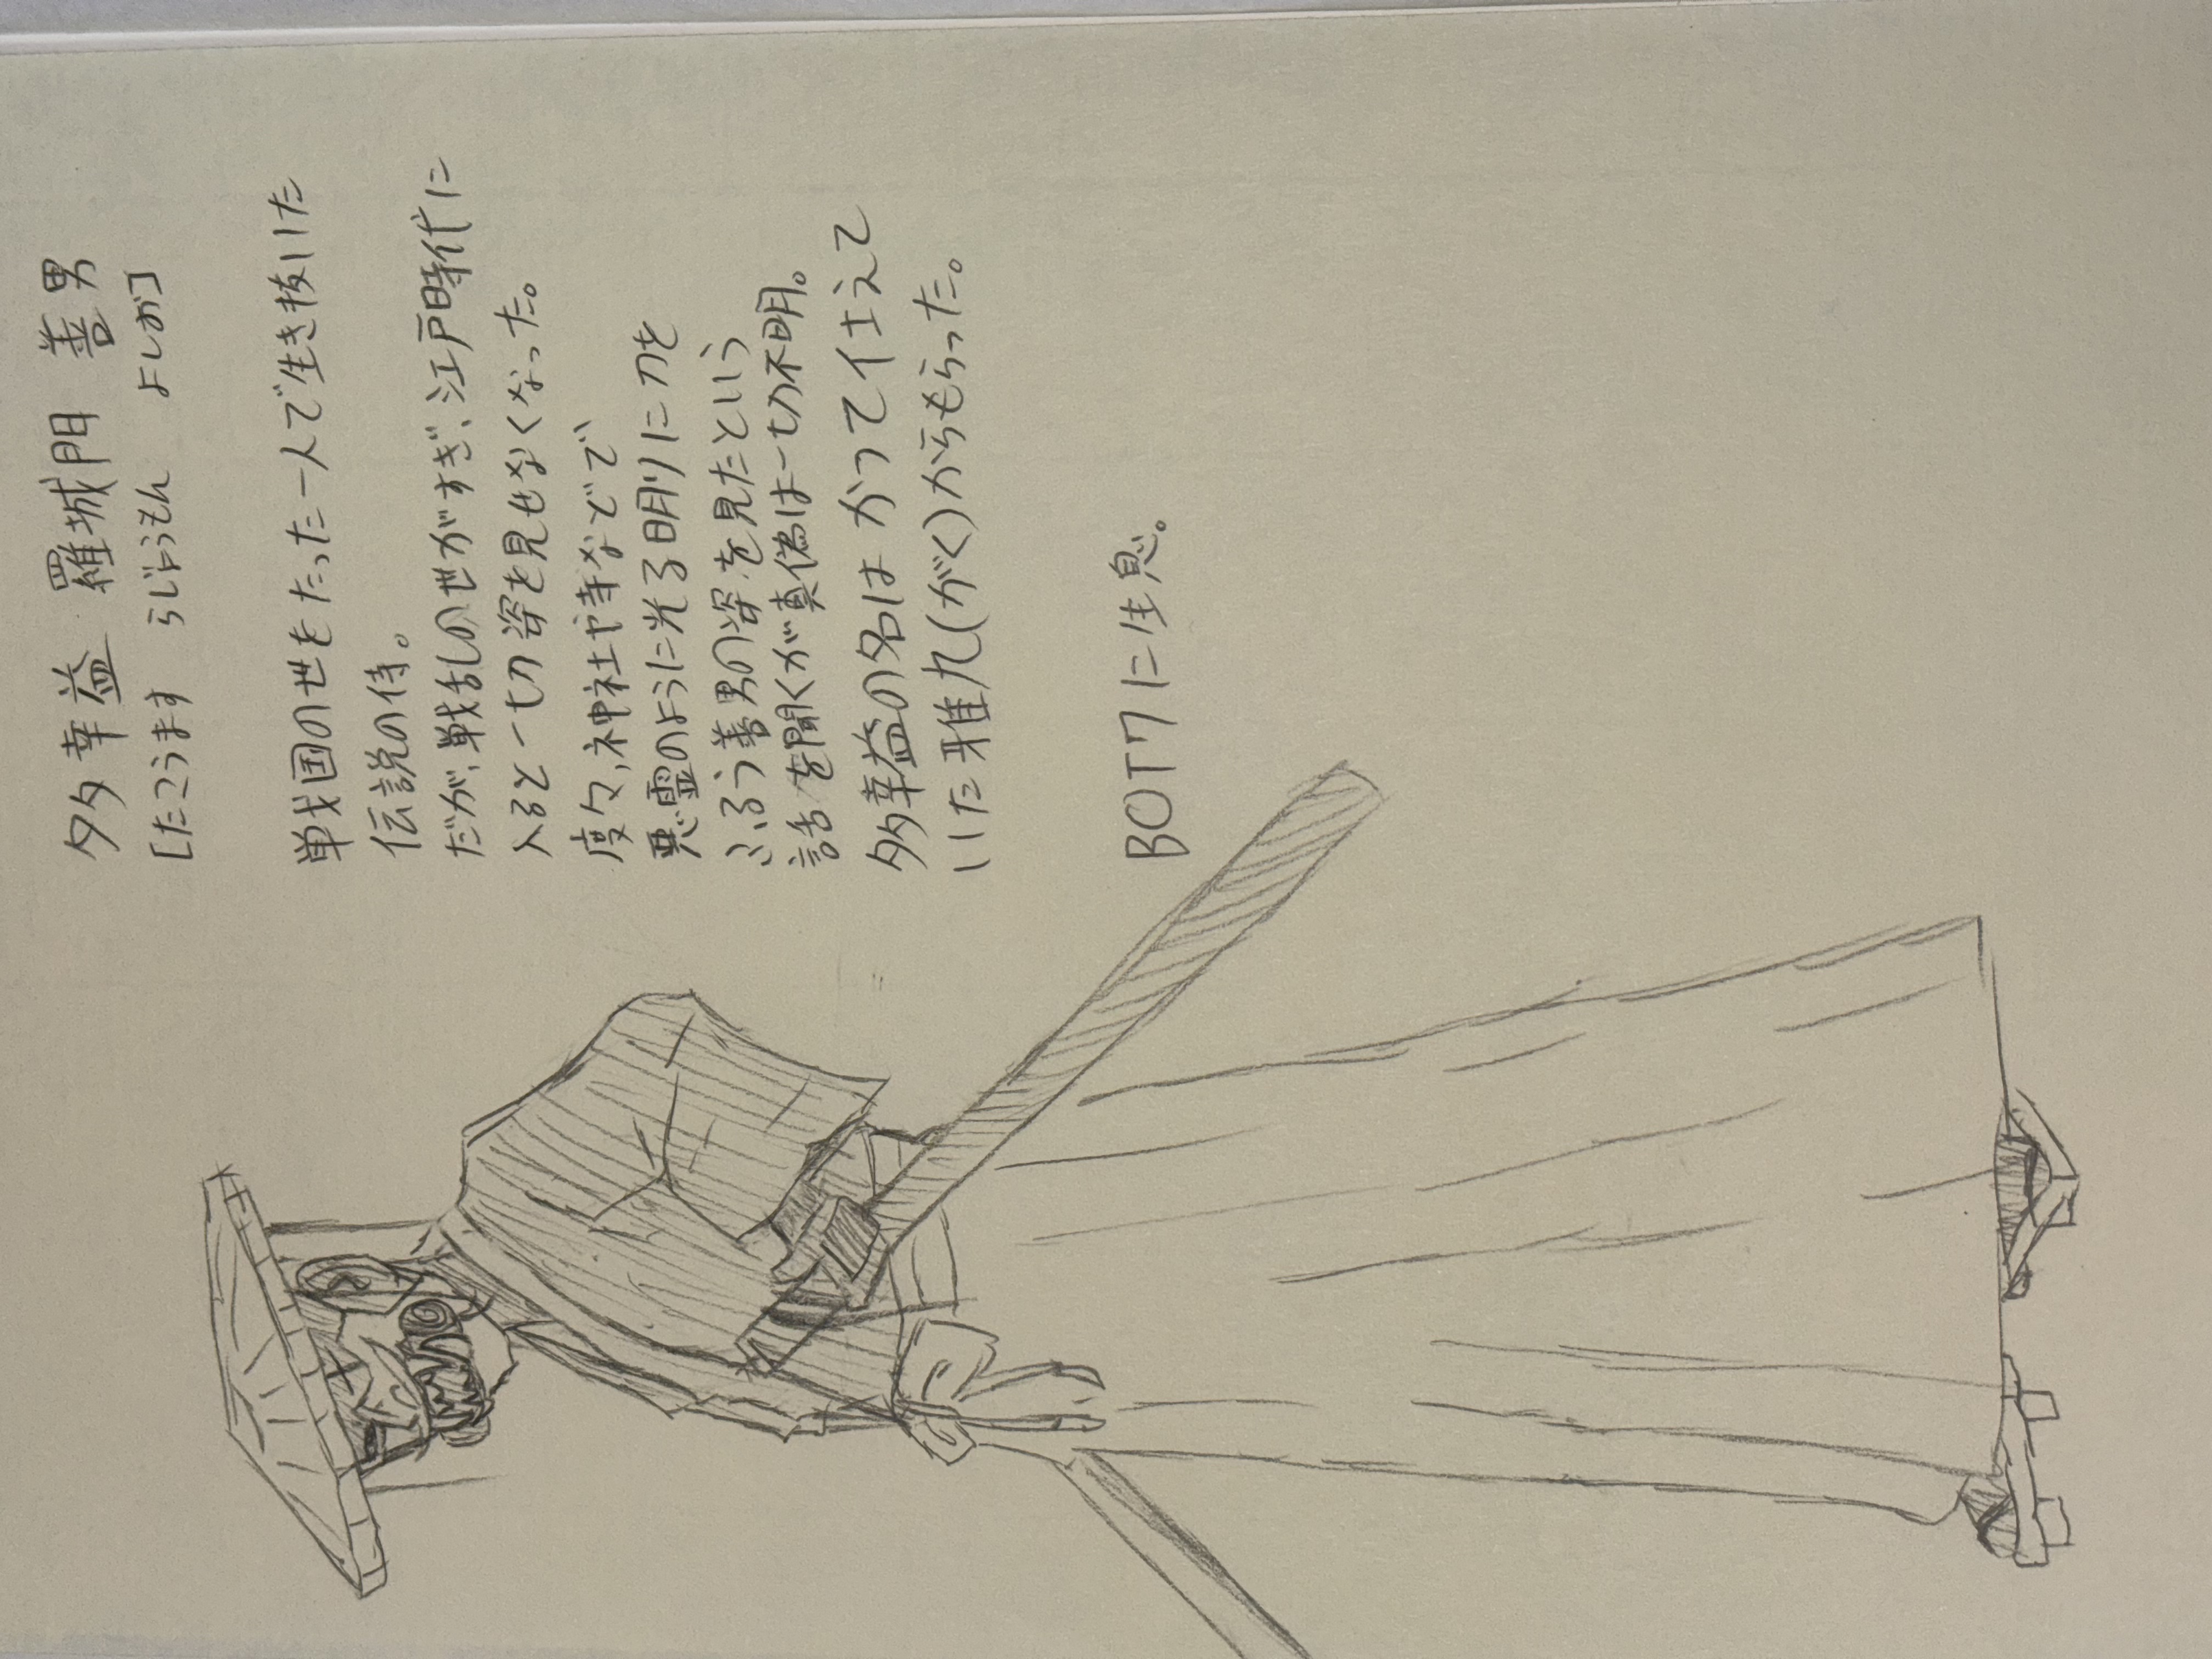 多幸益 羅城門 善男
[たこうます らじょうもん よしお]
戦国の世をたった一人で生き抜いた
伝説の侍。
だが、戦乱の世がすぎ、江戸時代に
入ると一切姿を見せなくなった。
度々、神社や寺などで
悪霊のように光る明りに刀を
ふるう善男の姿を見たという
話を聞くが真偽は一切不明。
多幸益の名はかつて仕えて
いた雅九(がく)からもらった。
BOTワに生息。